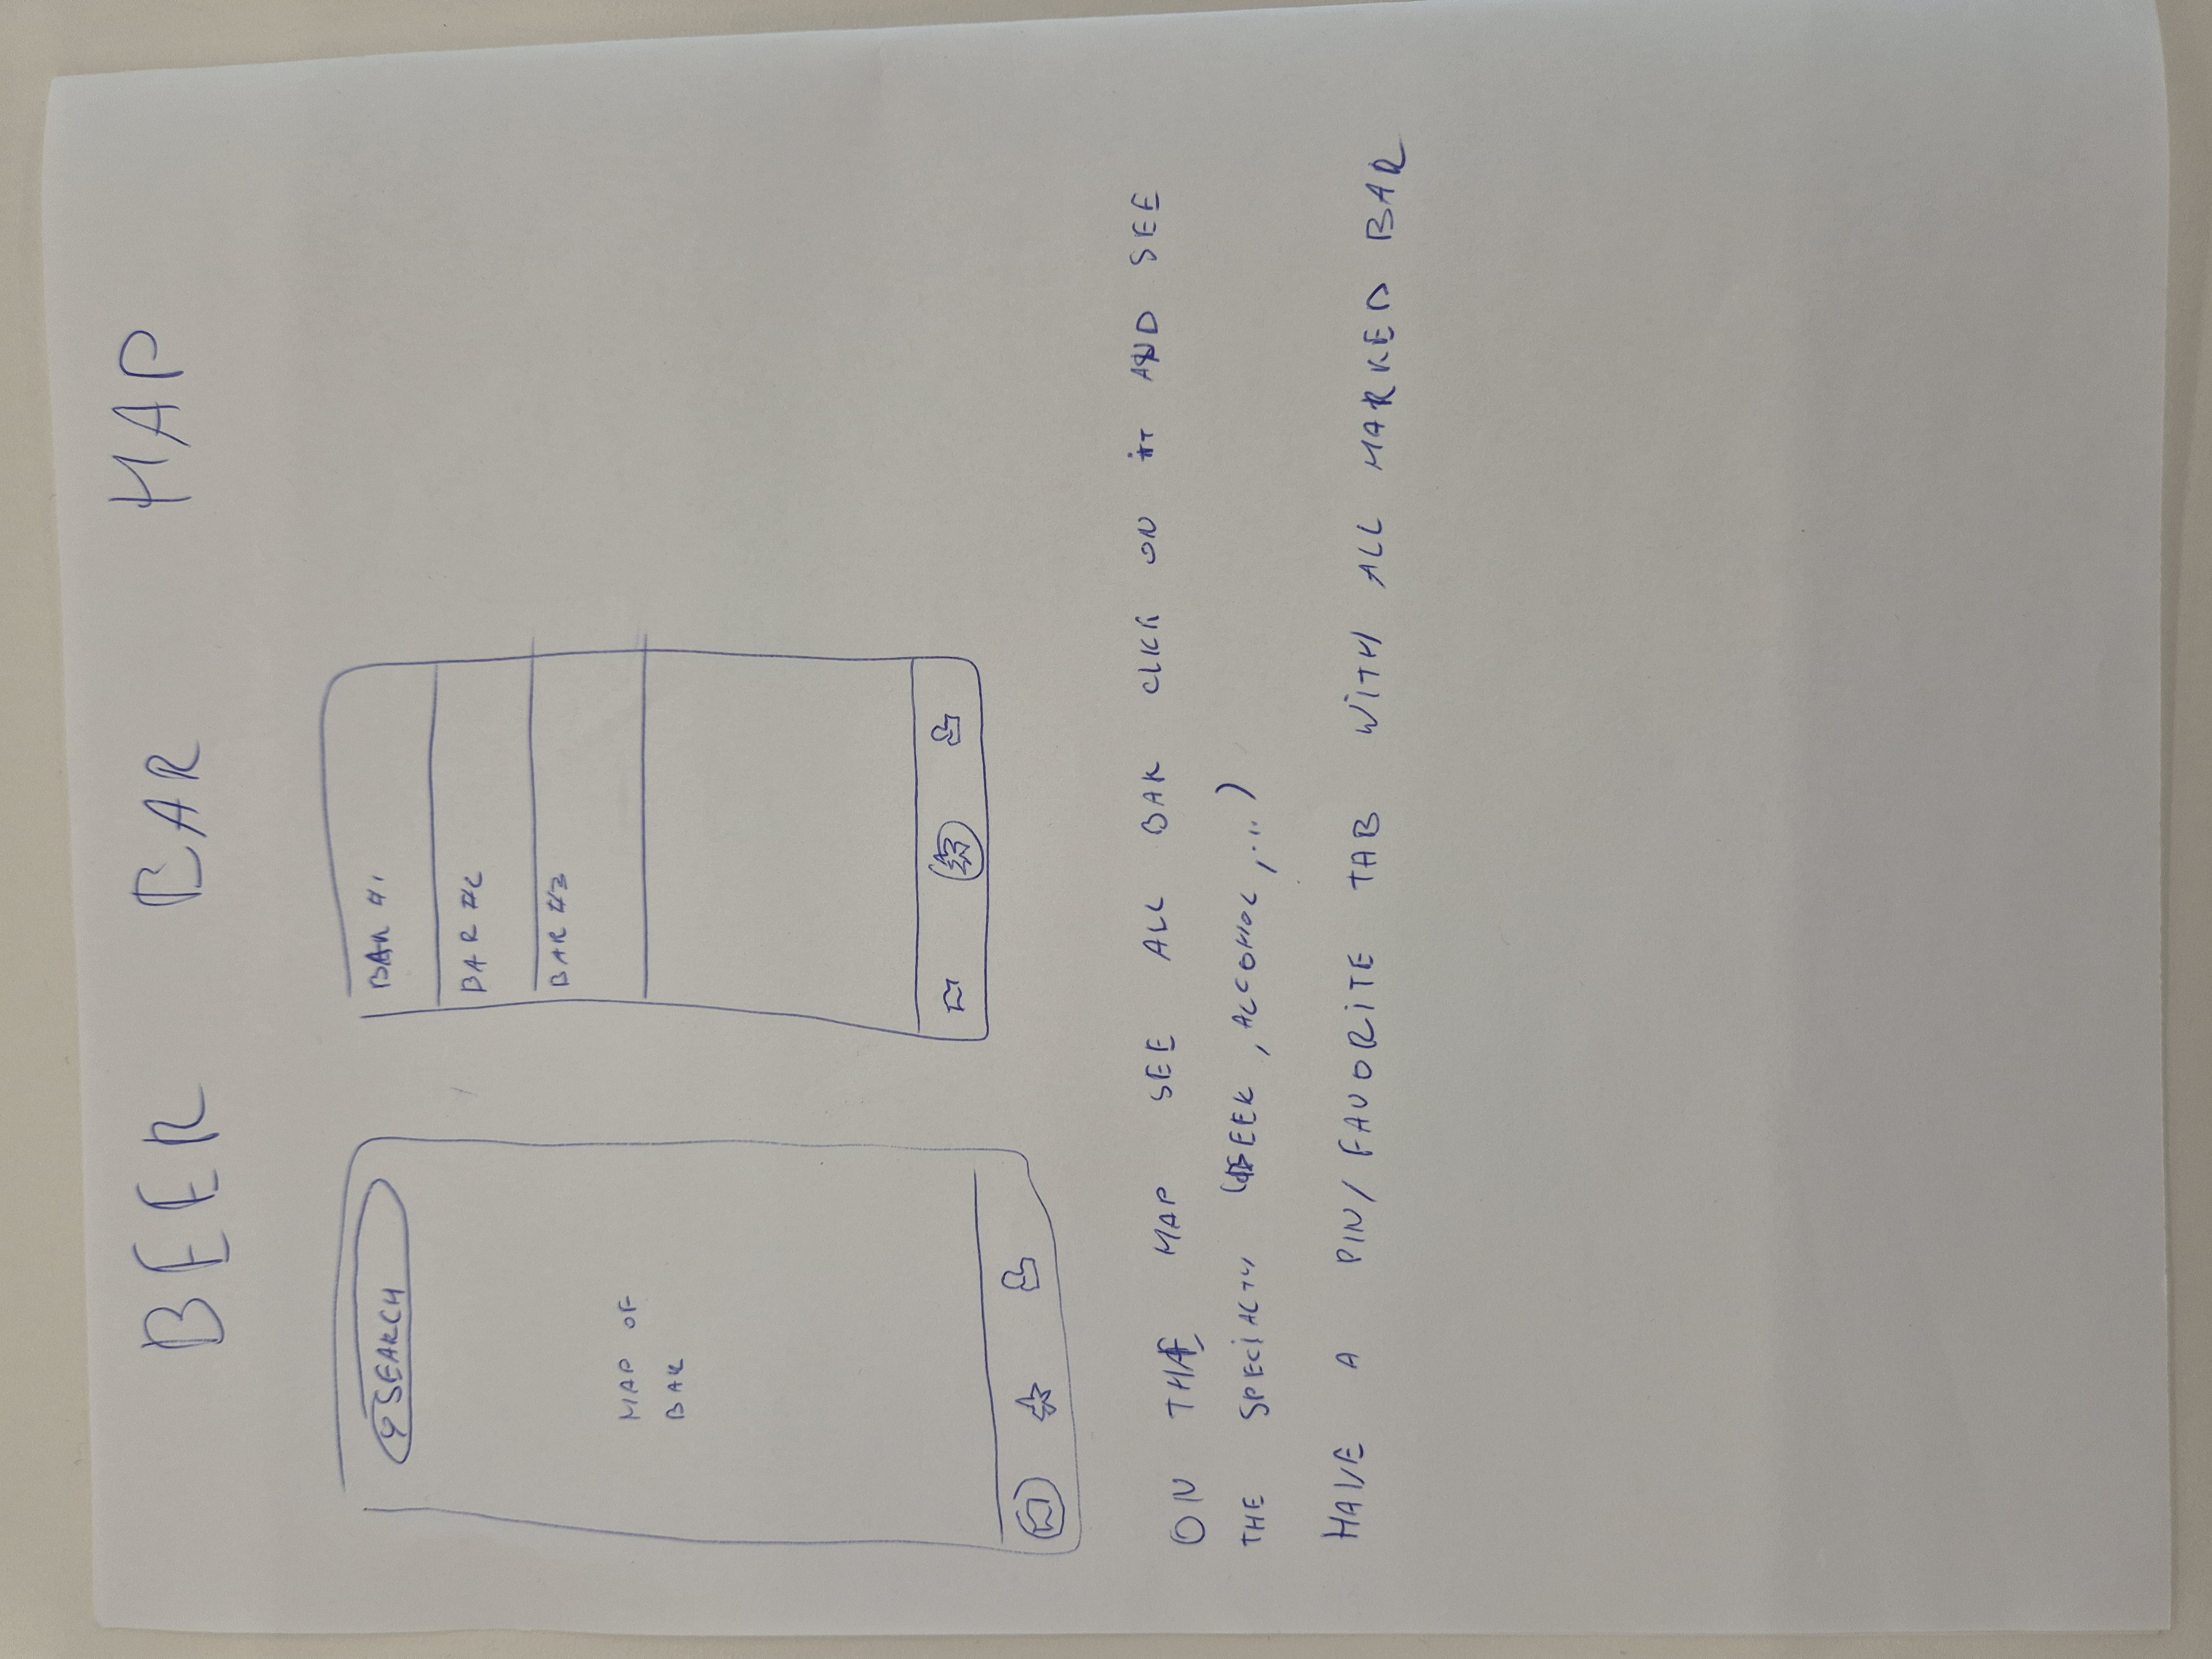 BEER BAR MAP
SEARCH
MAP OF
BAR
BAR #1
BAR #2
BAR #3
ON THE MAP SEE ALL BAR CLICK ON IT AND SEE
THE SPECIALTY (BEER, ALCOHOL, ...)
HAVE A PIN/FAVORITE TAB WITH ALL MARKED BAR